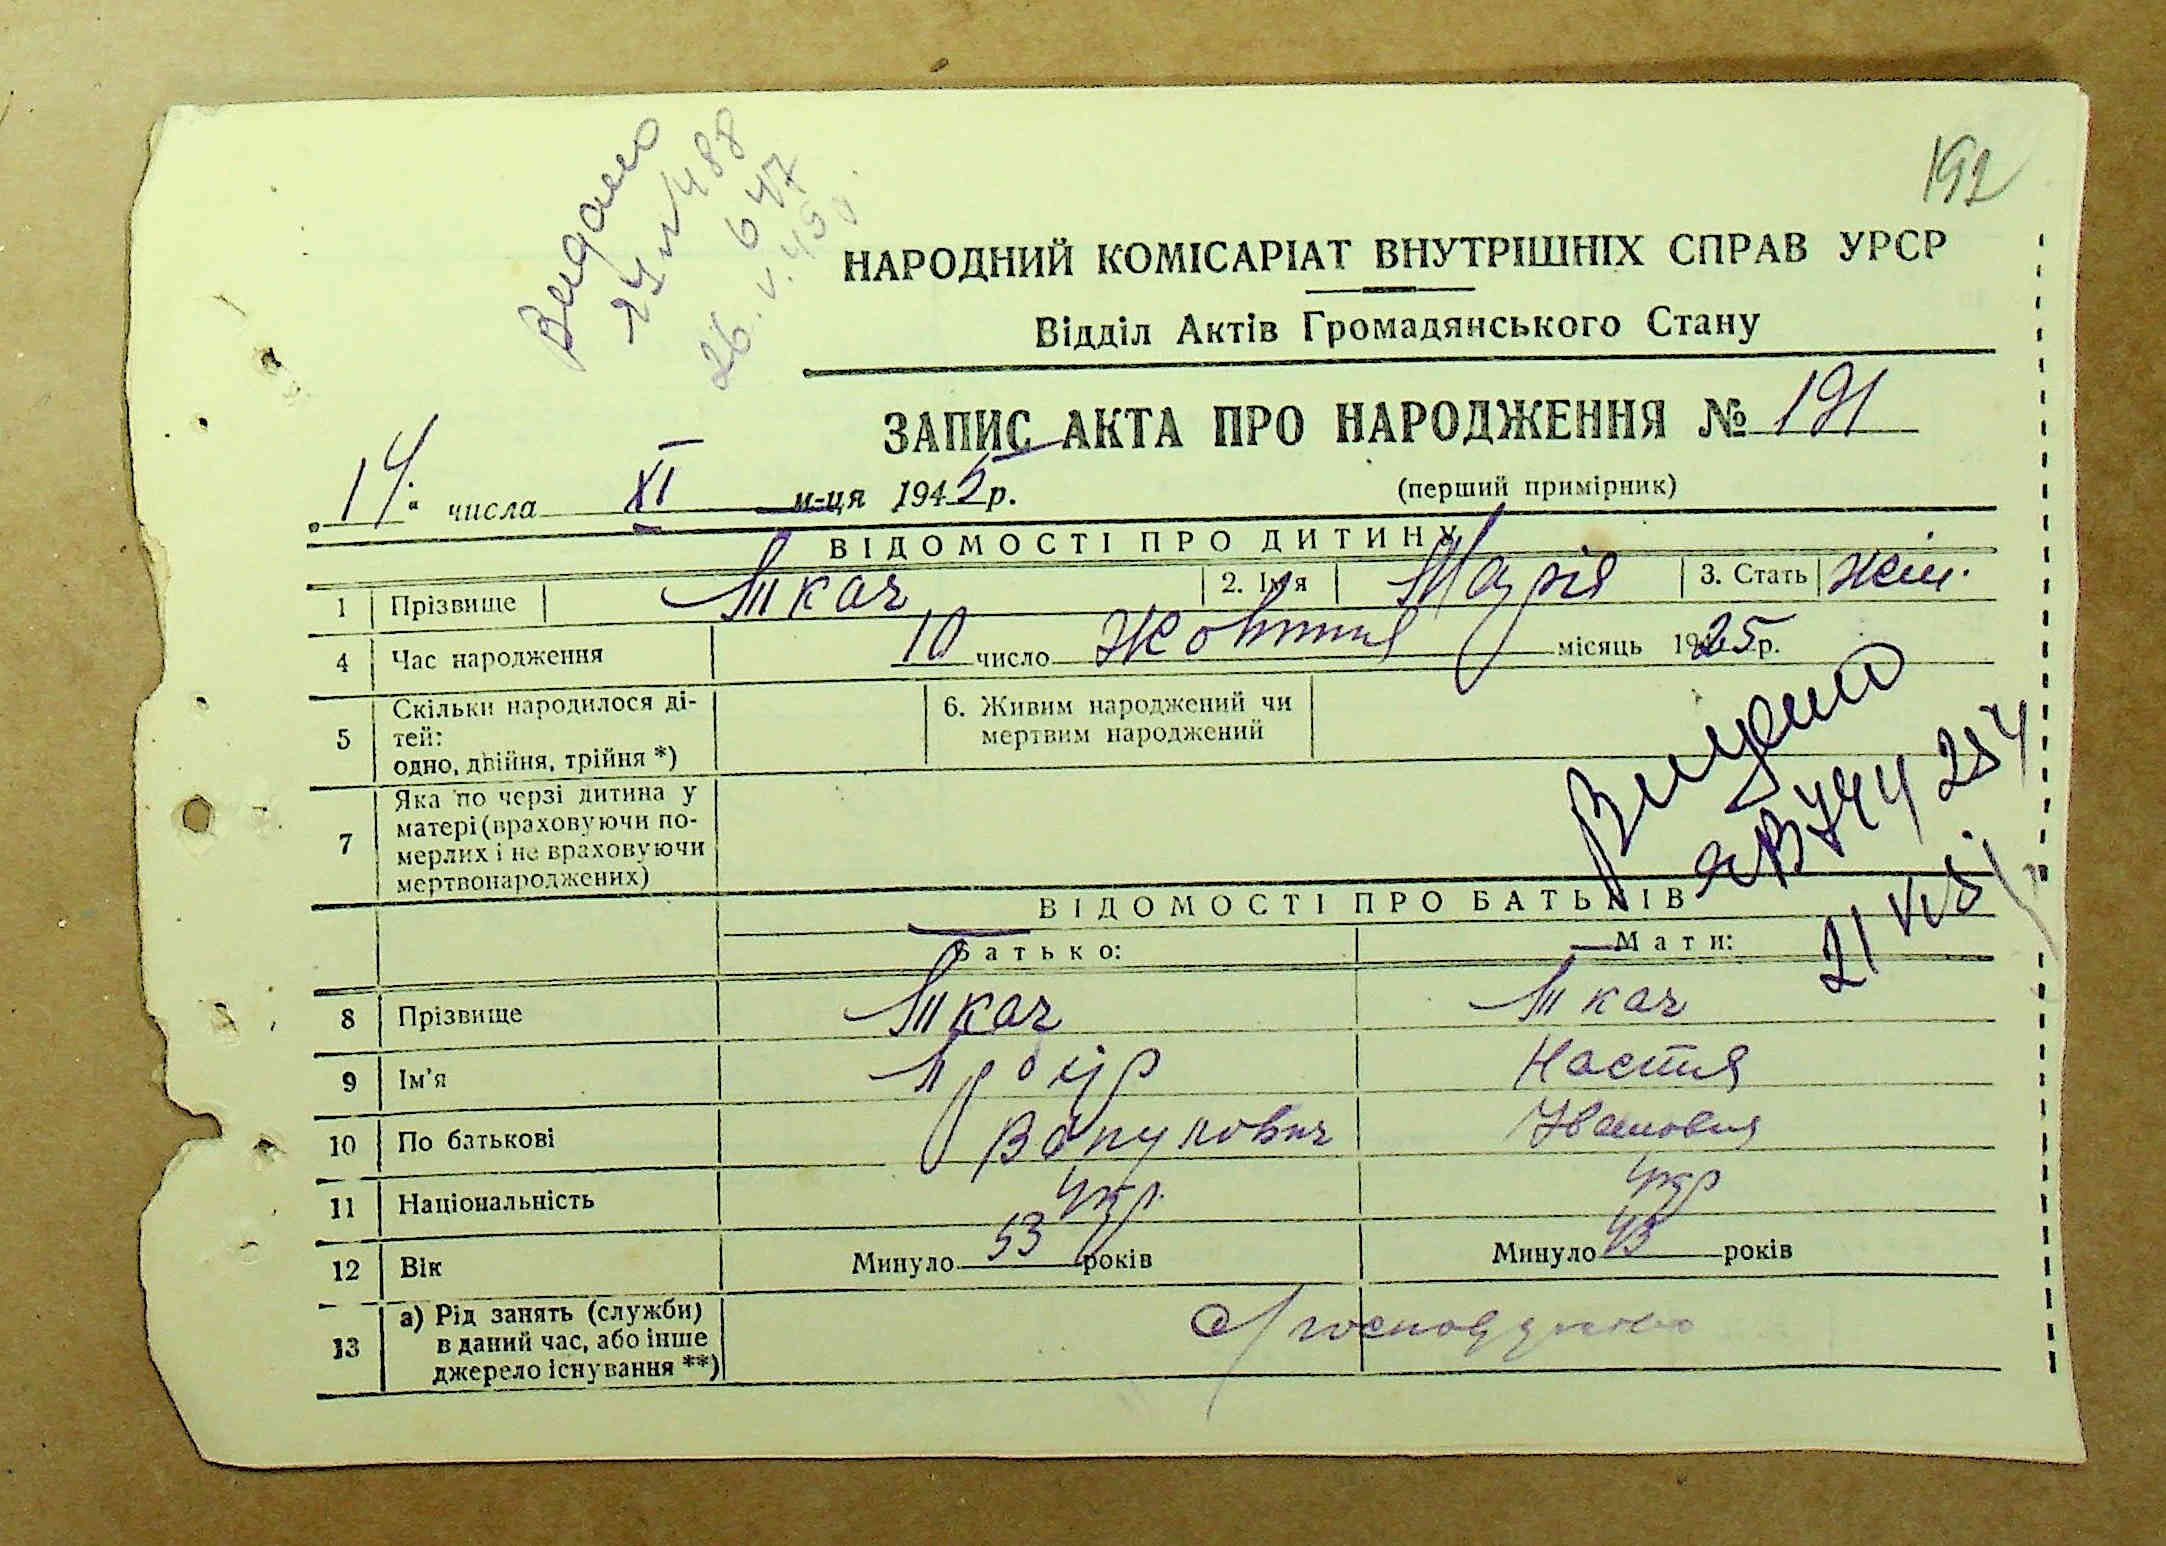 Видано
192
НАРОДНИЙ КОМІСАРІАТ ВНУТРІШНІХ СПРАВ УРСР
Відділ Актів Громадянського Стану
ЗАПИС АКТА ПРО НАРОДЖЕННЯ № 191
„14“ числа XI м-ця 1945 р.
(перший примірник)
ВІДОМОСТІ ПРО ДИТИНУ
1 Прізвище Ткач 2. Ім'я Марія 3. Стать жін.
4 Час народження 10 число Жовтня місяць 1925 р.
5 Скільки народилося ді-
тей:
одно, двійня, трійня *)
6. Живим народжений чи
мертвим народжений
7 Яка по черзі дитина у
матері (враховуючи по-
мерлих і не враховуючи
мертвонароджених)
Видано
ВІДОМОСТІ ПРО БАТЬКІВ
Батько: Мати:
8 Прізвище Ткач Ткач
9 Ім'я Прокір Настя
10 По батькові Вакулович Ивановна
11 Національність Укр. Укр
12 Вік Минуло 53 років Минуло 43 років
13 а) Рід занять (служби)
в даний час, або інше
джерело існування **)